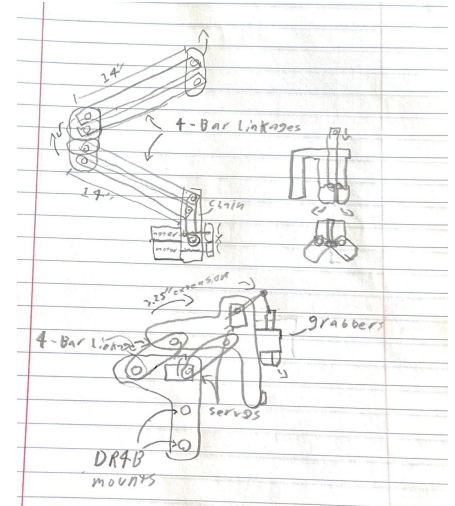 14"
4-Bar Linkages
14"
chain
motor
motor
3.25" extension
4-Bar Linkages
grabbers
servos
DR4B
mounts